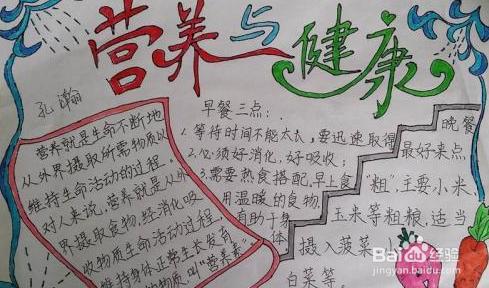 营养与健康
孔瀚
营养就是生命不断地
从外界摄取所需物质以
维持生命活动的过程。
对人来说,营养就是从外
界摄取食物,经消化吸
收物质生命活动过程,
维持身体正常生长发育
物质,叫“营养素”
早餐三点:
1.等待时间不能太长,需迅速取得
2.必须好消化,好吸收;
3.需要热食搭配,早上食
用温暖的食物,
有助于身
体
晚餐
最好来点
“粗”,主要小米、
玉米等粗粮,适当
摄入菠菜
白菜等。
Baidu经验
jingyan.baidu.com